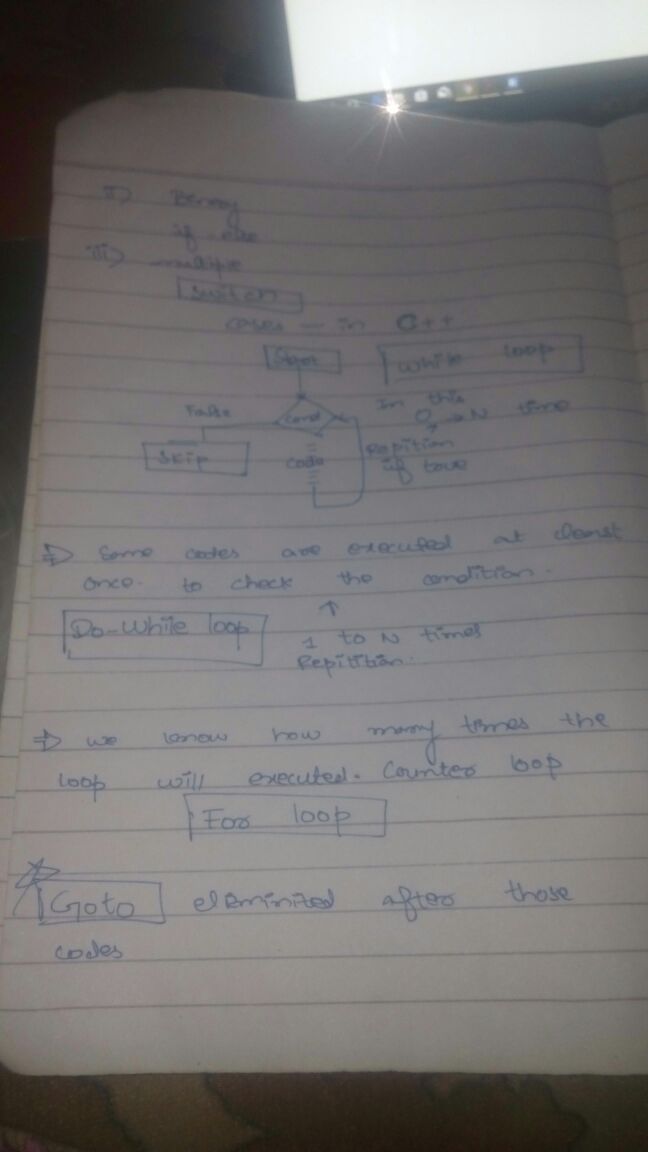 ii) Benary
if-else
iii) multipe
Switch
cases - in C++
Start
while loop
False
cond
In this
0 → N time
Skip
code
Repition
if true
⇒ Some codes are executed at cleast
once. to check the condition.
Do-While loop
↑
1 to N times
Repitition.
⇒ we know how many times the
loop will executed. Counter loop
For loop
Goto eleminited after those
codes